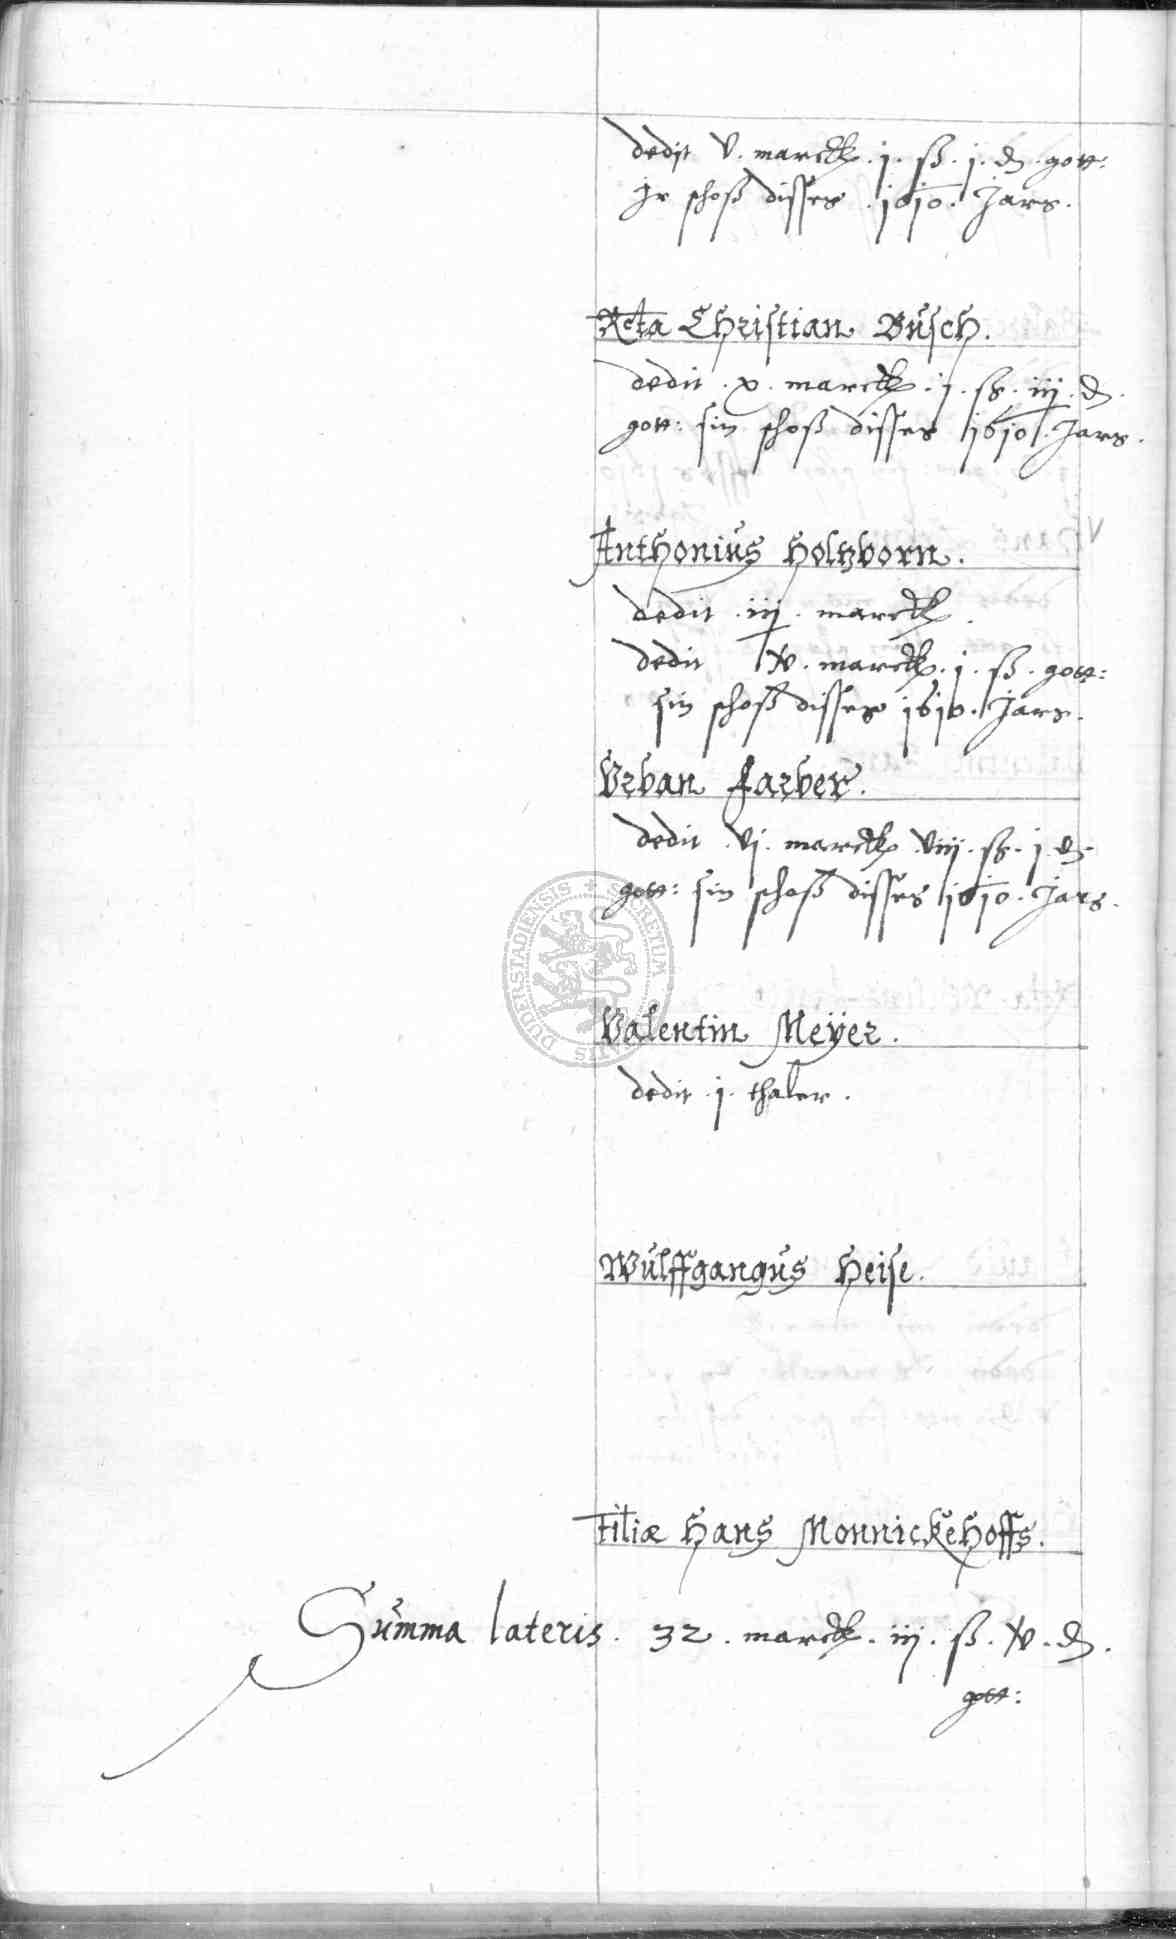 dedit v. marck. j. ß. j. d. gott:
Jr schoß disses .1610. Jars.
Rcta Christian Busch.
dedit .x. marck. j. ß. iij. d.
gott: sin schoß disses 1610. Jars.
Anthonius Holtzborn.
dedit .iij. marck.
dedit iv. marck. j. ß. gott:
sin schoß disses 1610. Jars.
Vrban Farber.
dedit .vj. marck viij. ß. j d.
gott: sin schoß disses 1610. Jars.
DUDERSTADIENSIS + SECRETUM
Valentin Meÿer.
dedit .j. thaler.
Wulffgangus Heise.
Filiæ Hans Monnickehoffs.
Summa lateris. 32. marck. iij. ß. iv. d.
gott: